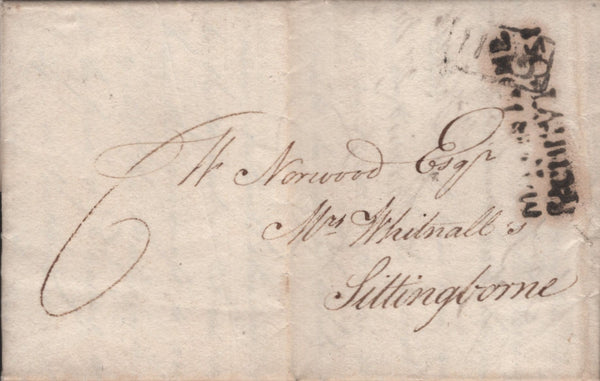 6
Wm Norwood Esqr
Mrs Whitnall's
Sittingborne
Penny Post